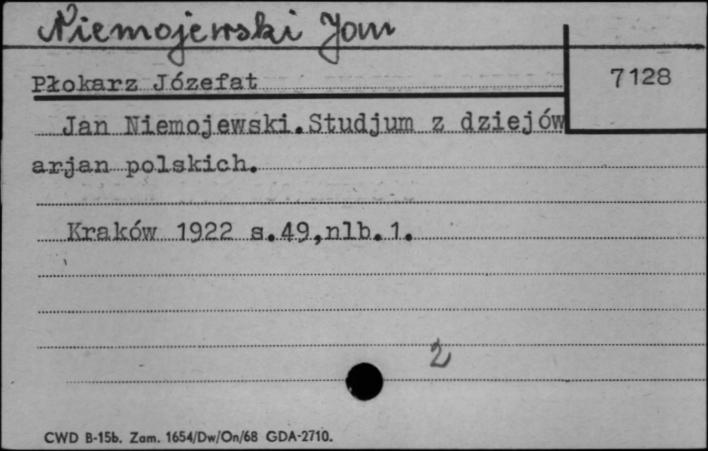 Niemojewski Jan
Płokarz Józefat
7128
Jan Niemojewski.Studjum z dziejów
arjan polskich.
Kraków 1922 s.49,nlb.1.
2
CWD B-15b. Zam. 1654/Dw/On/68 GDA-2710.